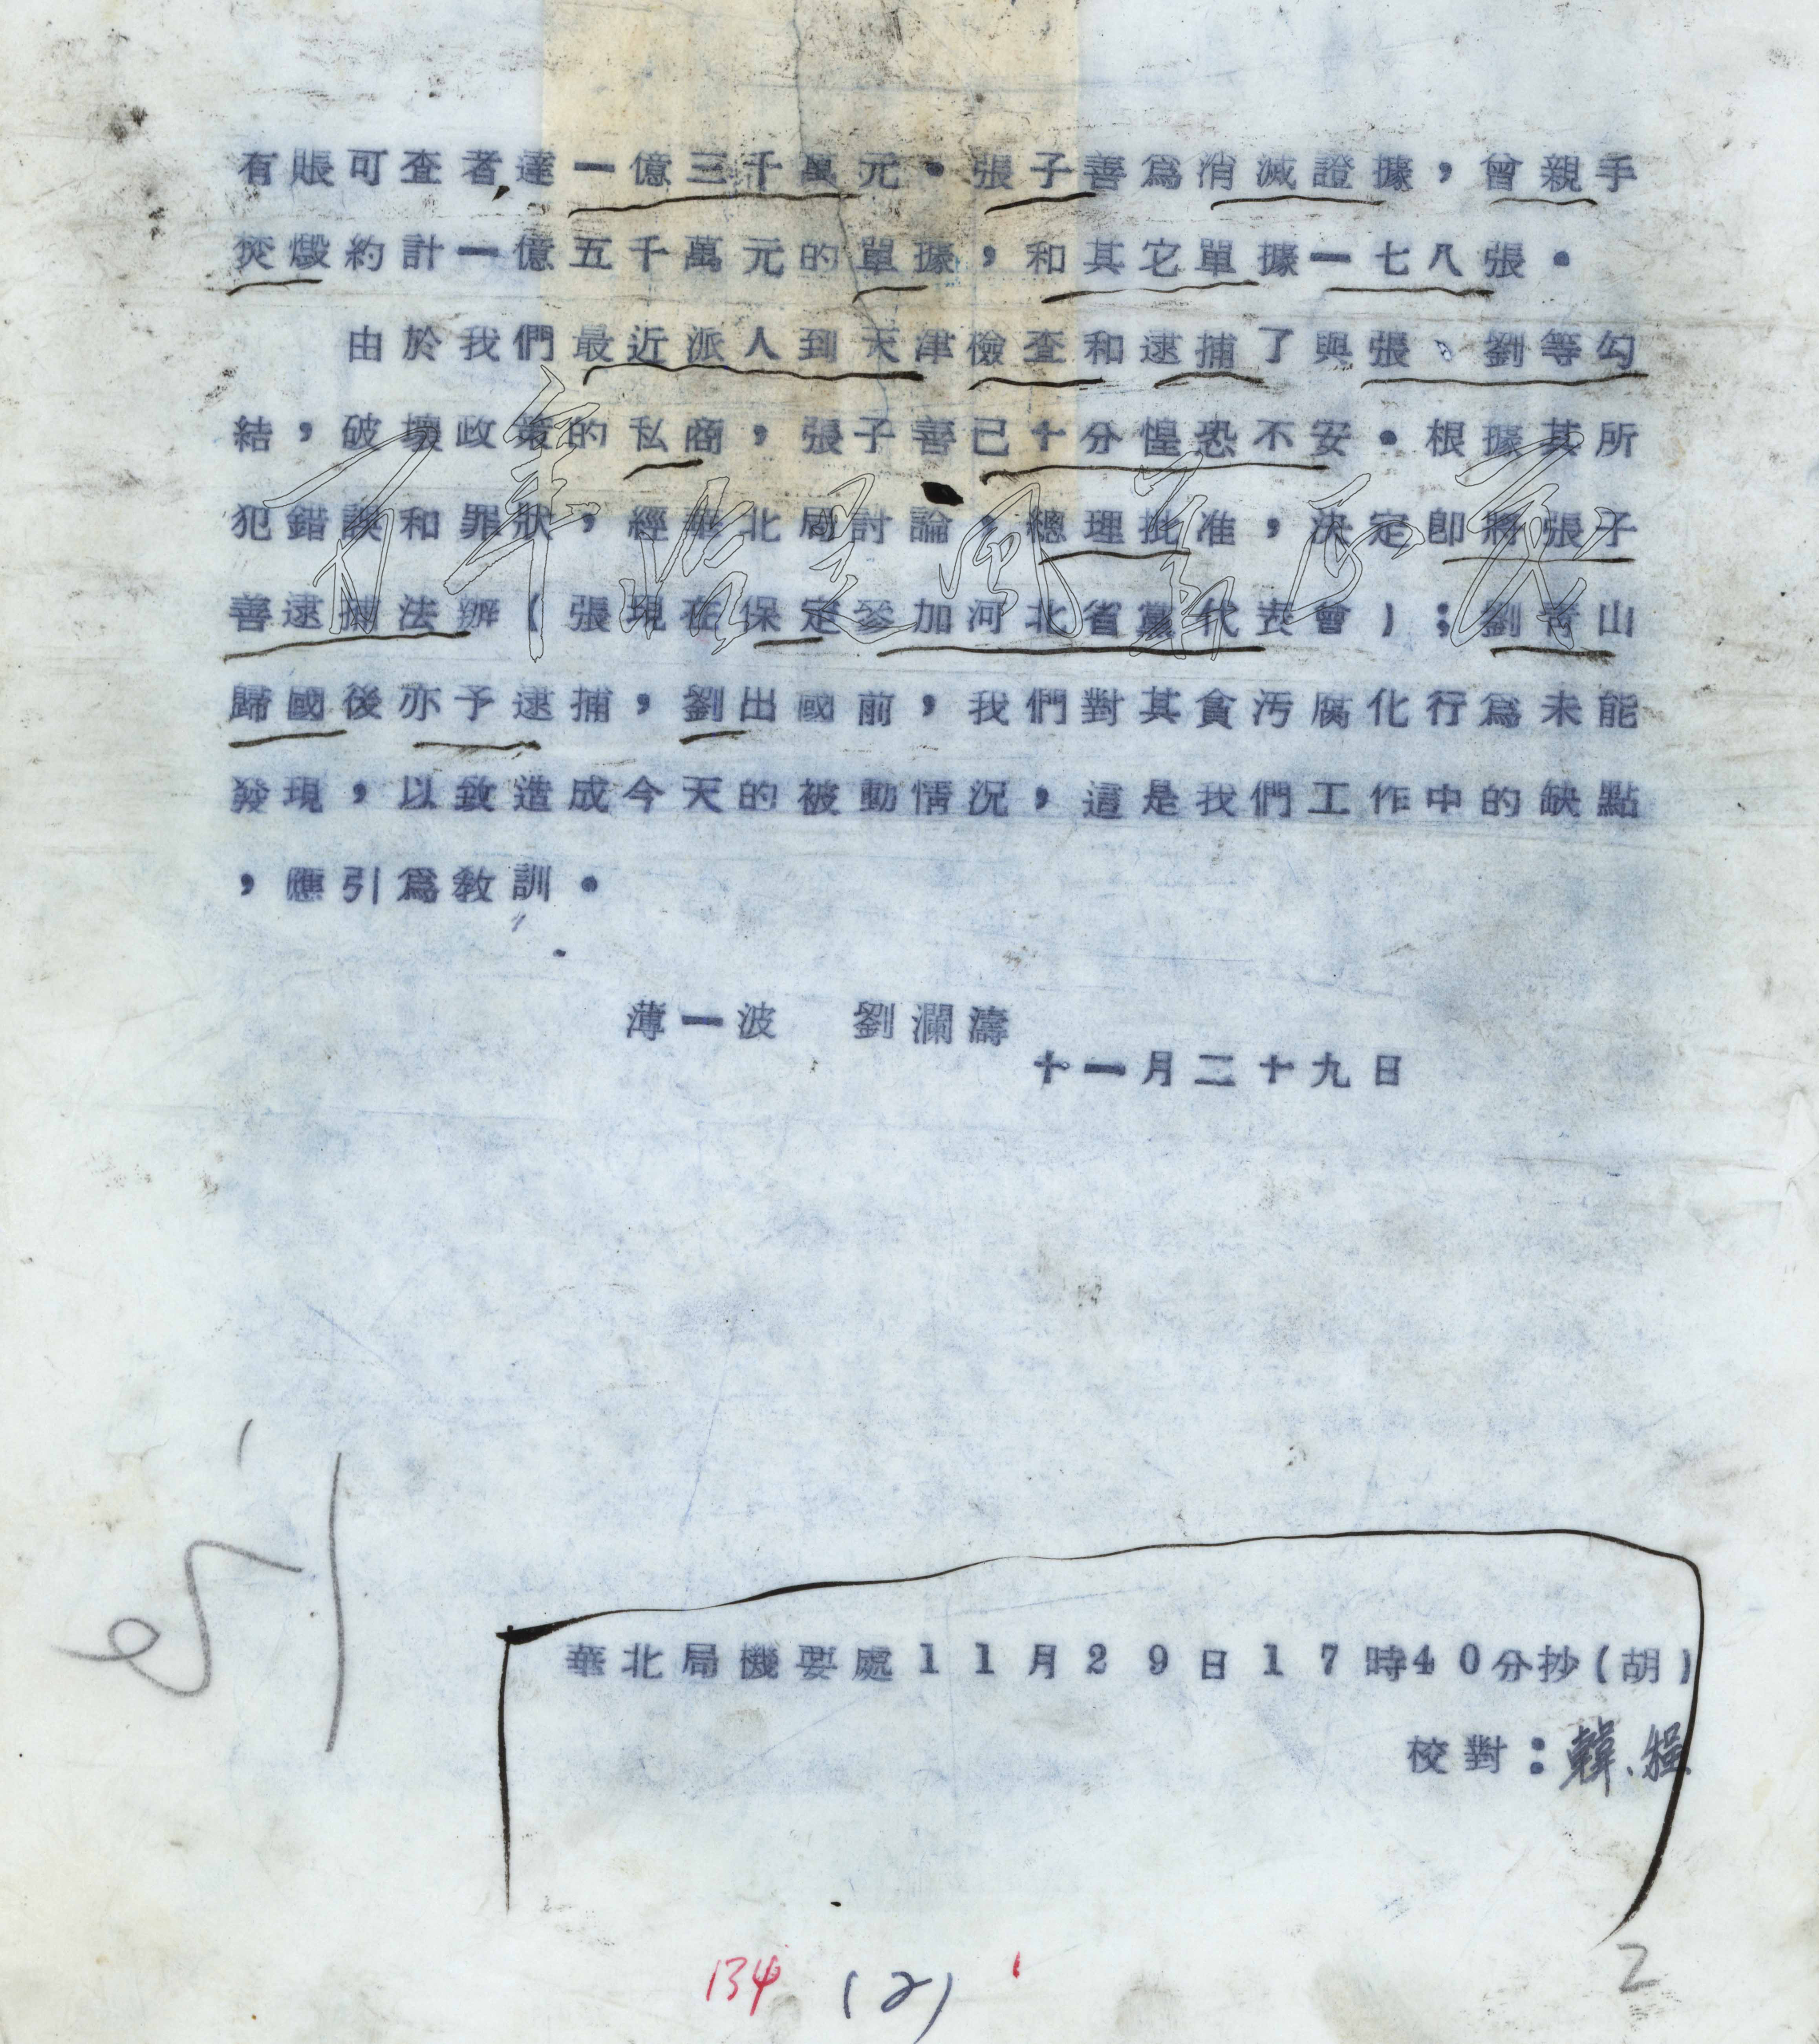 有賬可査者達一億三千萬元。張子善爲消滅證據，曾親手
焚燬約計一億五千萬元的單據，和其它單據一七八張。
由於我們最近派人到天津檢査和逮捕了與張、劉等勾
結，破壞政策的私商，張子善已十分惶恐不安。根據其所
犯錯誤和罪狀，經華北局討論，總理批准，決定卽將張子
善逮捕法辦(張現在保定參加河北省黨代表會)；劉青山
歸國後亦予逮捕，劉出國前，我們對其貪汚腐化行爲未能
發現，以致造成今天的被動情況，這是我們工作中的缺點
，應引爲敎訓。
薄一波 劉瀾濤
十一月二十九日
華北局機要處11月29日17時40分抄(胡)
校對：韓
134 (2)
2
百年治皇風齋